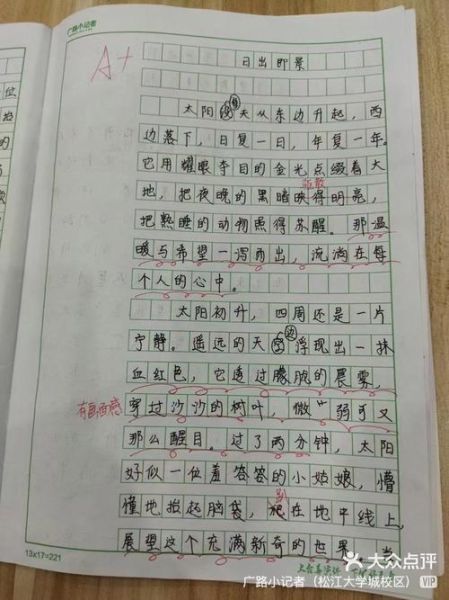 广路小记者
A+
日出即景
太阳每天从东边升起，西
边落下，日复一日，年复一年。
它用耀眼夺目的金光点缀着大
地，把夜晚的黑暗映得明亮，
把熟睡的动物照得苏醒。那温
暖与希望一泻而出，流淌在每
个人的心中。
太阳初升，四周还是一片
宁静。遥远的天边浮现出一抹
血红色，它透过朦胧的晨雾，
穿过沙沙的树叶，微弱可又
有画面感
那么醒目。过了两分钟，太阳
好似一位羞答答的小姑娘，懵
懂地抬起脑袋，趴在地平线上，
展望这个充满新奇的世界。当
13x17=221
大众点评
广路小记者（松江大学城校区） VIP